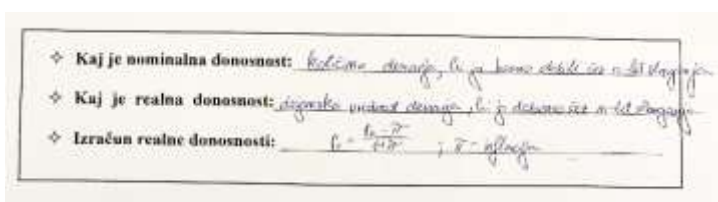 ❖ Kaj je nominalna donosnost: količina denarja, ki ga bomo dobili čez n let vlaganja
❖ Kaj je realna donosnost: dejanska vrednost denarja, ki jo dobimo čez n let vlaganja
❖ Izračun realne donosnosti: ; π - inflacija